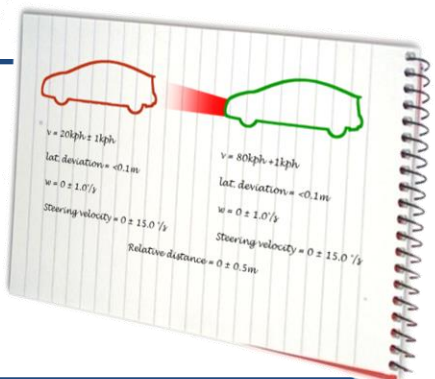 v = 20kph ± 1kph
lat. deviation = <0.1m
w = 0 ± 1.0°/s
Steering velocity = 0 ± 15.0 °/s
v = 80kph +1kph
lat. deviation = <0.1m
w = 0 ± 1.0°/s
Steering velocity = 0 ± 15.0 °/s
Relative distance = 0 ± 0.5m